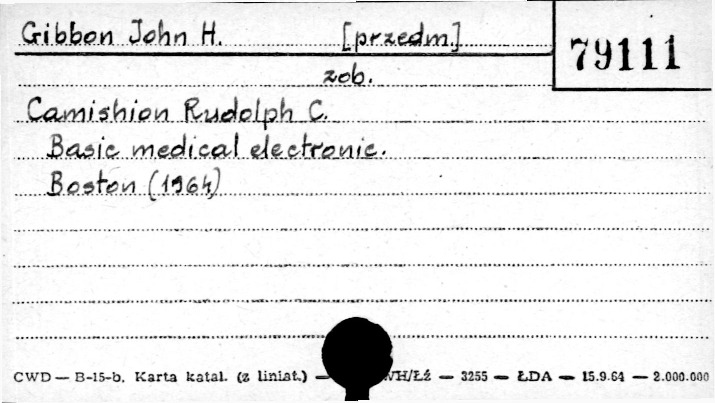 Gibbon John H. [przedm.]
79111
zob.
Camishion Rudolph C.
Basic medical electronic.
Boston (1964)
CWD — B-15-b. Karta katal. (z liniat.) — WH/Łż — 3255 — ŁDA — 15.9.64 — 2.000.000